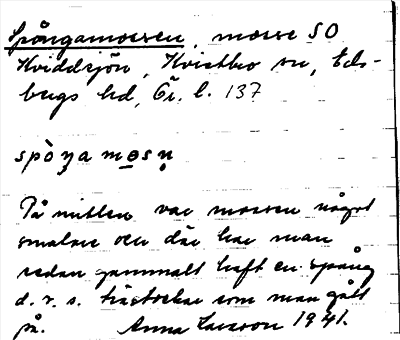 Spångamossen, mosse SO
Kviddsjön, Kvistbro sn, Eds-
bergs hd, Ör. l. 137
spòŋa mɷsn̥
På mitten var mossen något
smalare och där har man
sedan gammalt haft en spång
d. v. s. trästockar som man gått
på. Anna Larsson 1941.